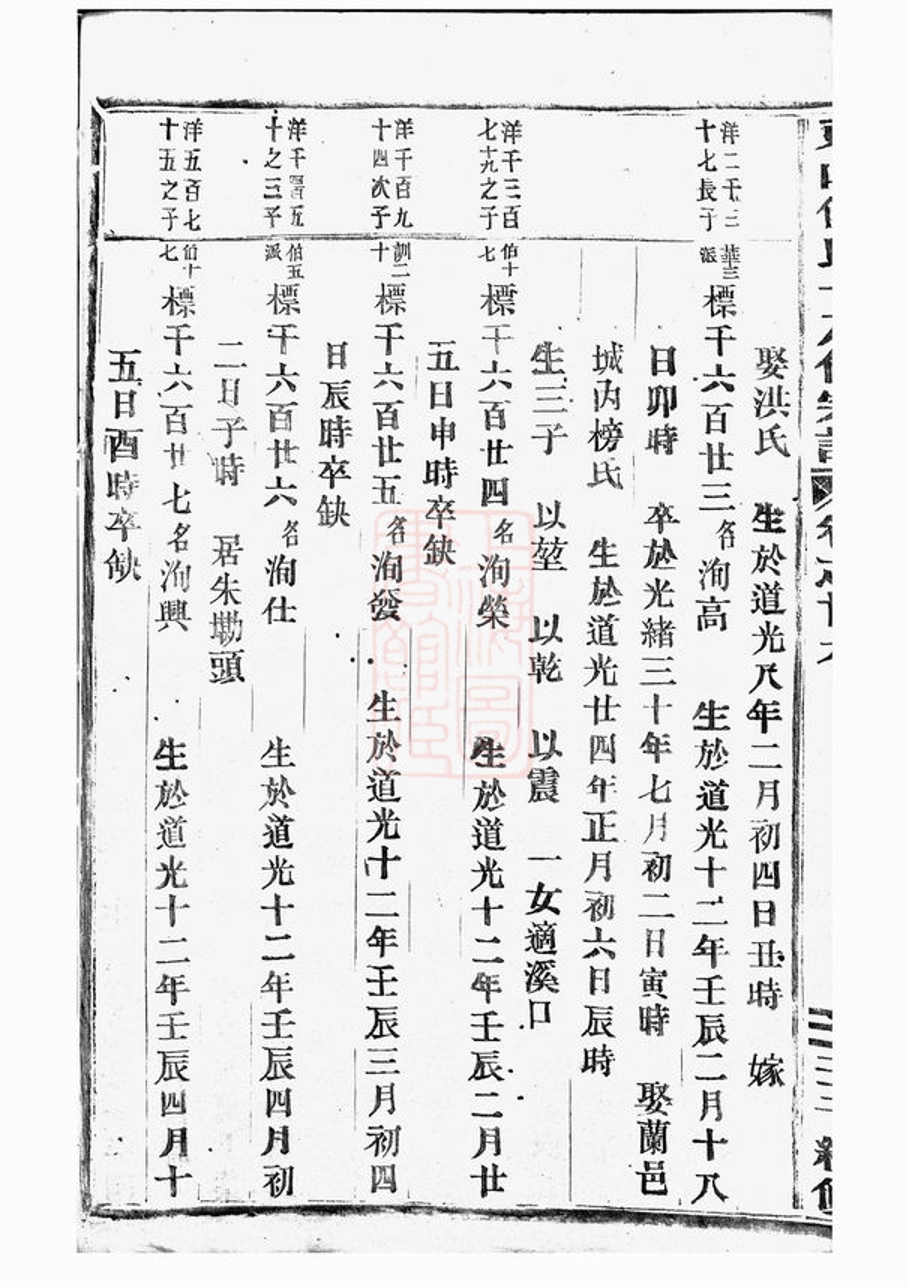 娶洪氏 生於道光八年二月初四日丑時 嫁
洋二千三十七長子 華三派 標千六百廿三 名洵高 生於道光十二年壬辰二月十八
日卯時 卒於光緒三十年七月初二日寅時 娶蘭邑
城內榜氏 生於道光廿四年正月初六日辰時
生三子 以堃 以乾 以震 一女適溪口
洋千三百七十九之子 伯十七 標千六百廿四 名洵榮 生於道光十二年壬辰二月廿
五日申時卒缺
洋千百九十四次子 訓二十 標千六百廿五 名洵發 生於道光十二年壬辰三月初四
日辰時卒缺
洋千四百五十之三子 伯五派 標千六百廿六 名洵仕 生於道光十二年壬辰四月初
二日子時 居朱塢頭
洋五百七十五之子 伯十七 標千六百廿七 名洵興 生於道光十二年壬辰四月十
五日酉時卒缺